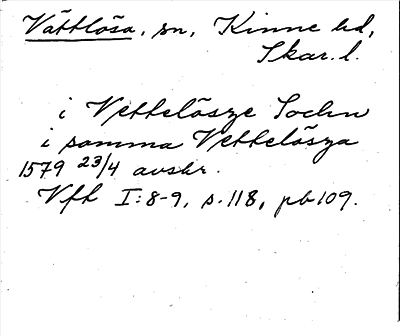 Vättlösa, sn, Kinne hd,
Skar. l.
i Vettelösze Sochn
i samma Vettelösza
1579 23/4 avskr.
Vft I:8-9, s. 118, pb 109.